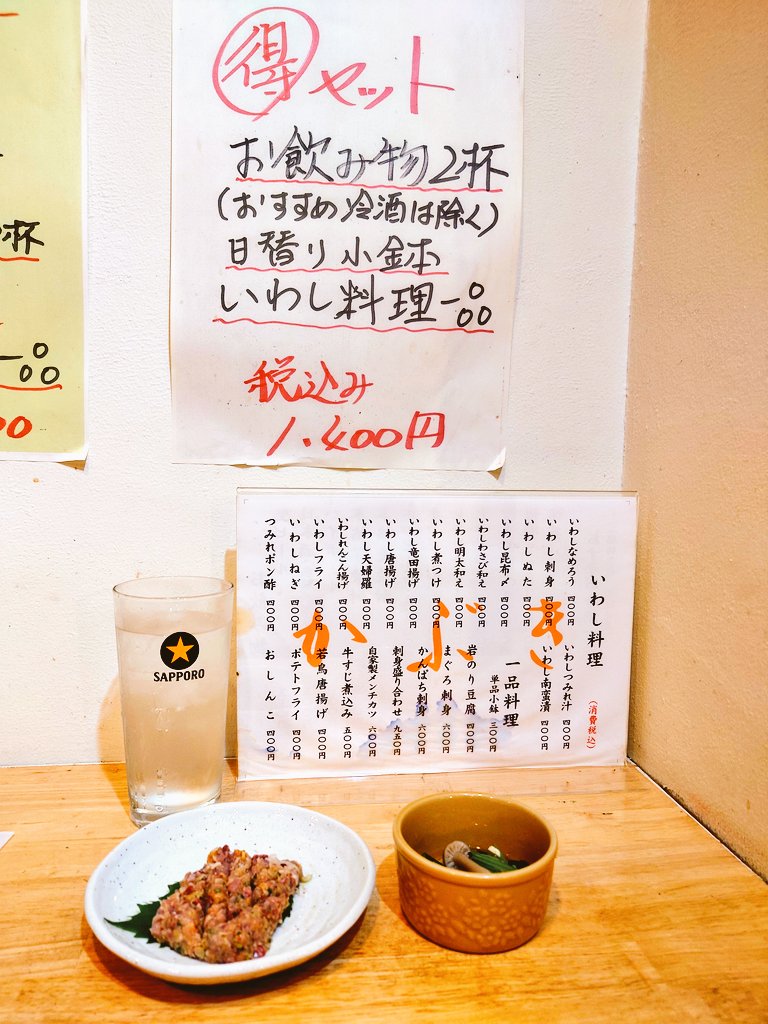 得セット
お飲み物2杯
(おすすめ冷酒は除く)
日替り小鉢
いわし料理一品
税込み
1.400円
杯
一品
00
SAPPORO
かぶき
いわし料理
(消費税込)
いわしなめろう 四〇〇円
いわし刺身 四〇〇円
いわしぬた 四〇〇円
いわし昆布〆 四〇〇円
いわしわさび和え 四〇〇円
いわし明太和え 四〇〇円
いわし煮つけ 四〇〇円
いわし竜田揚げ 四〇〇円
いわし唐揚げ 四〇〇円
いわし天婦羅 四〇〇円
いわしれんこん揚げ 四〇〇円
いわしフライ 四〇〇円
いわしねぎ 四〇〇円
つみれポン酢 四〇〇円
いわしつみれ汁 四〇〇円
いわし南蛮漬 四〇〇円
一品料理
単品小鉢 三〇〇円
岩のり豆腐 四〇〇円
まぐろ刺身 六〇〇円
かんぱち刺身 六〇〇円
刺身盛り合わせ 九五〇円
自家製メンチカツ 六〇〇円
牛すじ煮込み 五〇〇円
若鳥唐揚げ 四〇〇円
ポテトフライ 四〇〇円
おしんこ 四〇〇円